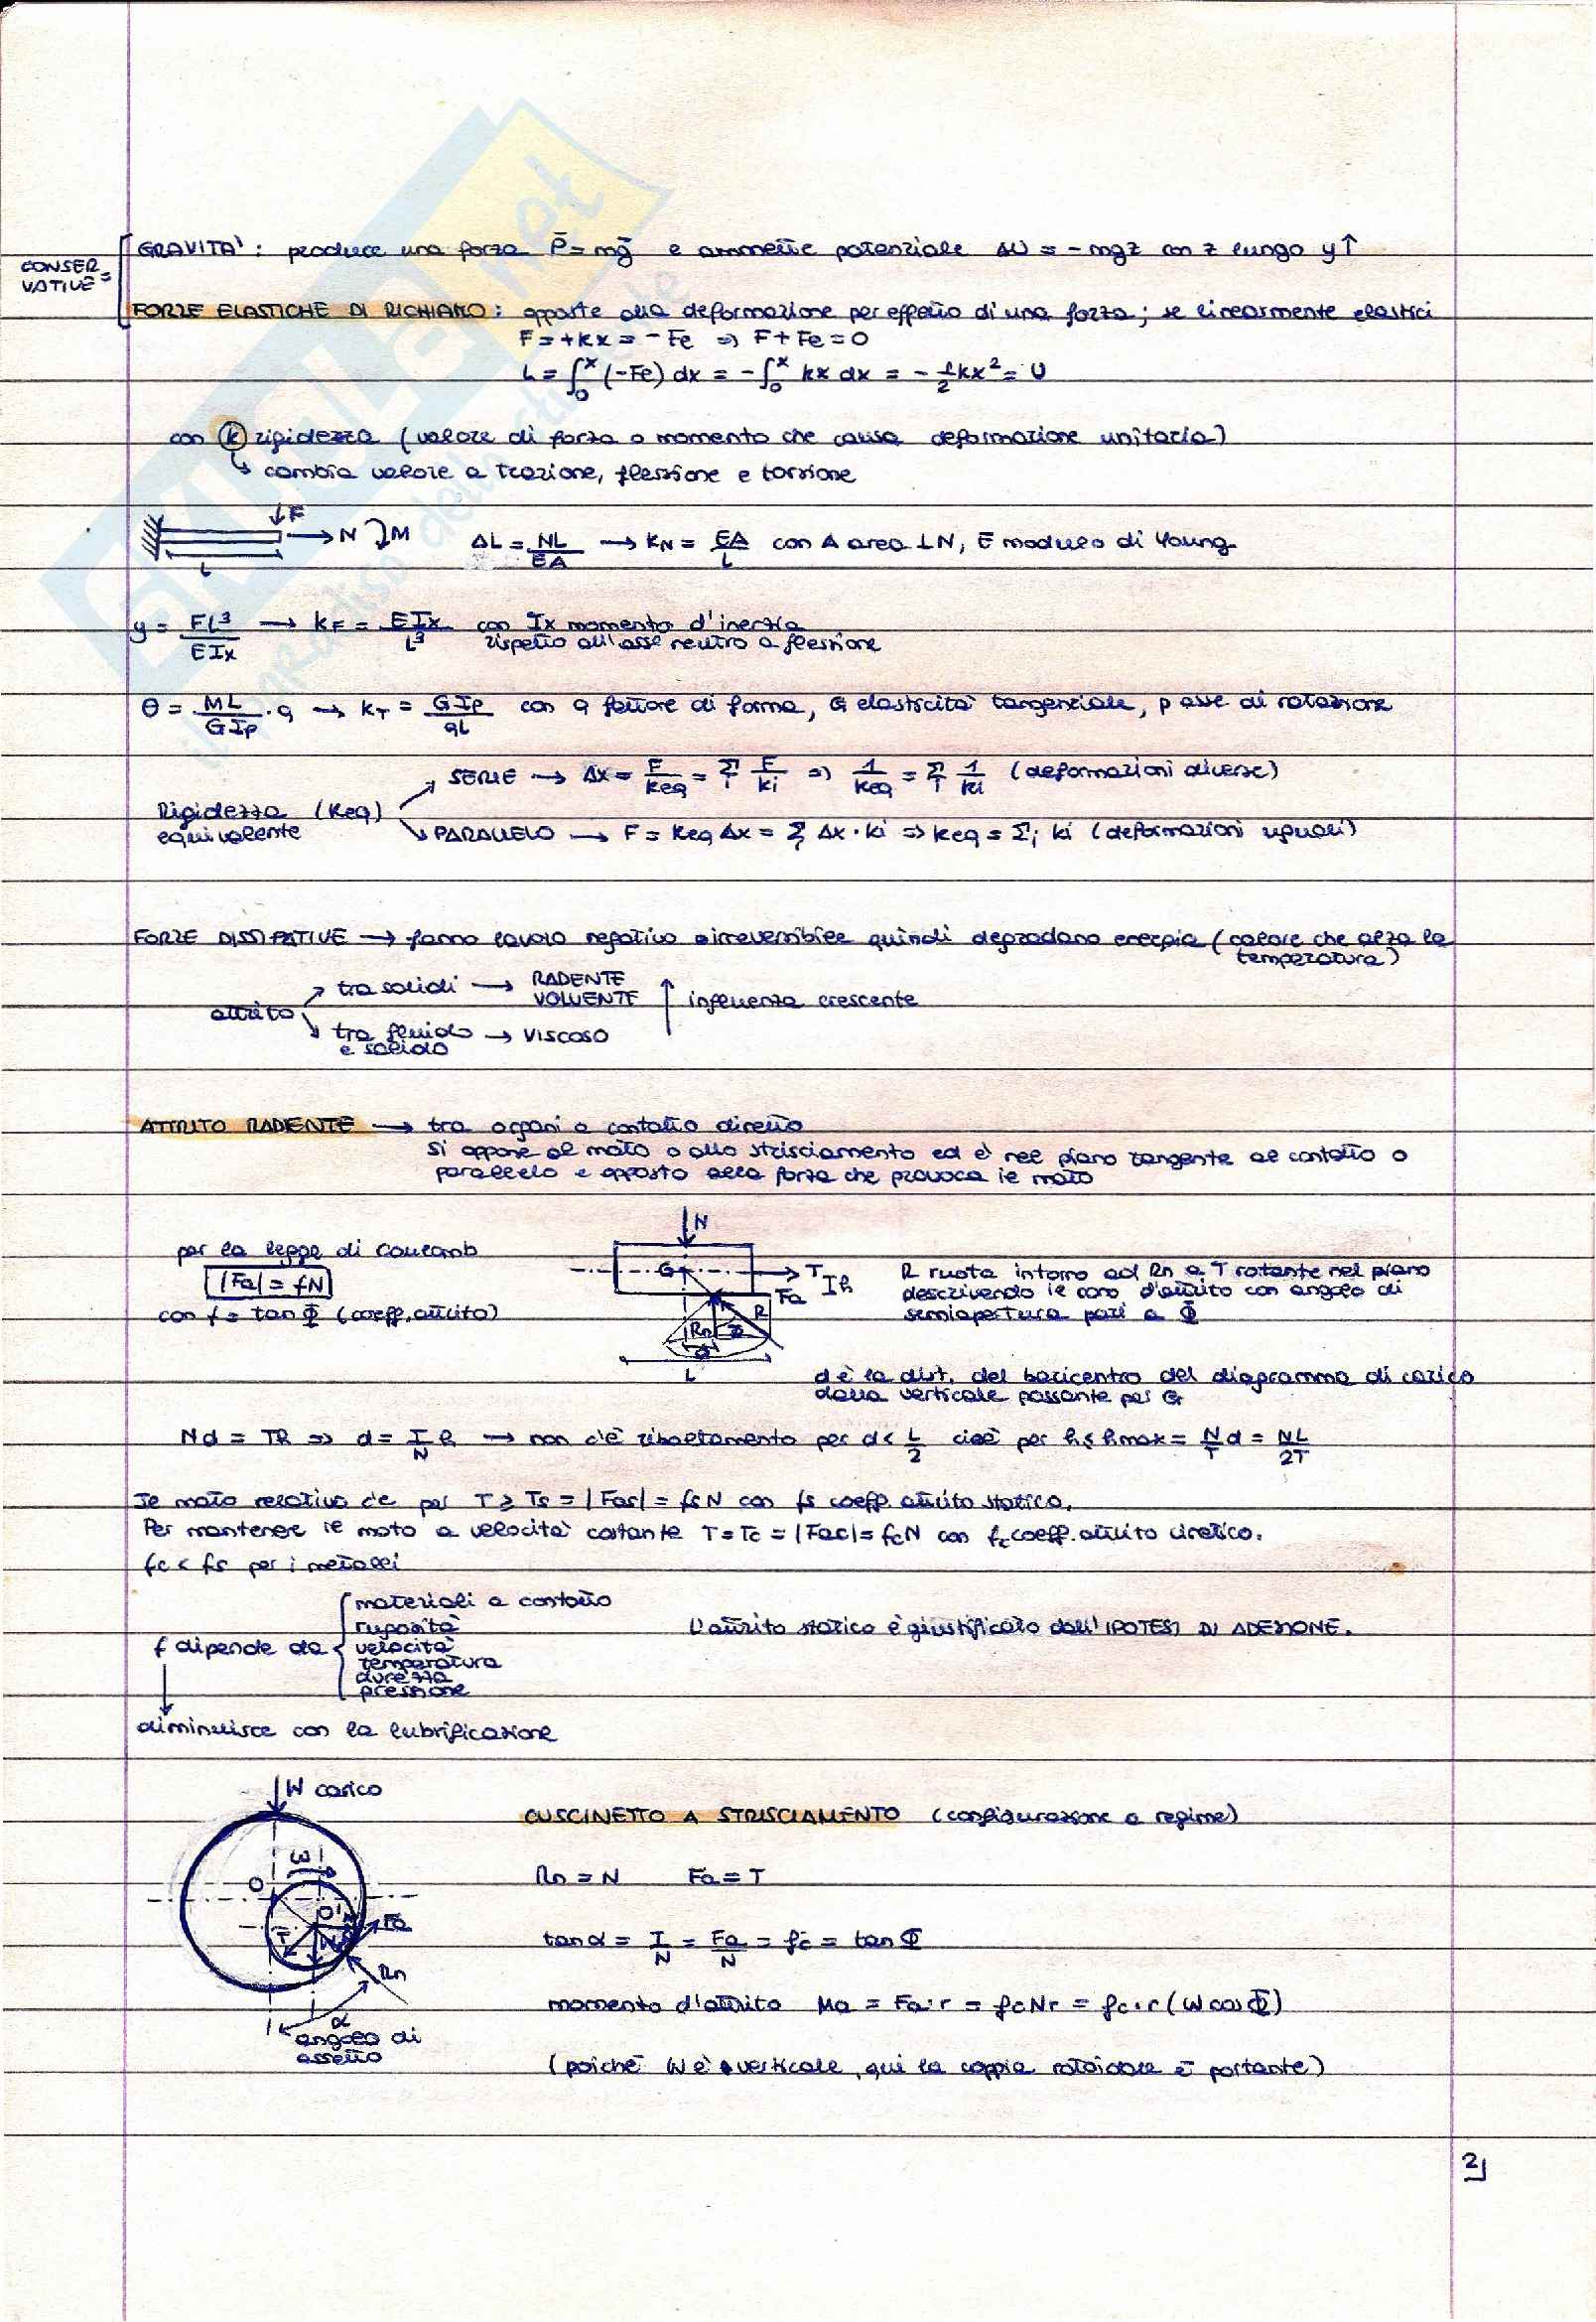 GRAVITA' : produce una forza P̄ = mḡ e ammette potenziale ΔU = - mgz con z lungo y↑
CONSER
VATIVE =
FORZE ELASTICHE DI RICHIAMO : opposte alla deformazione per effetto di una forza ; se linearmente elastici
F = +kx = - Fe ⇒ F + Fe = 0
L = ∫₀ˣ (-Fe) dx = - ∫₀ˣ kx dx = - 1/2 kx² = U
con k rigidezza (valore di forza o momento che causa deformazione unitaria)
↳ cambia valore a trazione, flessione e torsione
F
N M
L
ΔL = NL/EA → kN = EA/L con A area ⊥ N, E modulo di Young
y = FL³/EIx → kF = EIx/L³ con Ix momento d'inerzia
rispetto all'asse neutro a flessione
θ = ML/GIp · q → kT = GIp/qL con q fattore di forma, G elasticità tangenziale, p asse di rotazione
SERIE → Δx = F/keq = Σi F/ki ⇒ 1/keq = Σi 1/ki (deformazioni diverse)
Rigidezza (keq)
equivalente
PARALLELO → F = keq Δx = Σi Δx · ki ⇒ keq = Σi ki (deformazioni uguali)
FORZE DISSIPATIVE → fanno lavoro negativo irreversibile quindi degradano energia (calore che alza la
temperatura)
attrito
tra solidi → RADENTE
VOLVENTE
influenza crescente
tra fluido → VISCOSO
e solido
ATTRITO RADENTE → tra organi a contatto diretto
Si oppone al moto o allo strisciamento ed è nel piano tangente al contatto o
parallelo e opposto alla forza che provoca il moto
N
per la legge di Coulomb
|Fa| = fN
con f = tan Φ (coeff. attrito)
G T h
Fa
R
Rn Φ
d
L
R ruota intorno ad Rn a T rotante nel piano
descrivendo il cono d'attrito con angolo di
semiapertura pari a Φ
d è la dist. del baricentro del diagramma di carico
dalla verticale passante per G
Nd = Th ⇒ d = T/N h → non c'è ribaltamento per d < L/2 cioè per h ≤ hmax = N/T d = NL/2T
Il moto relativo c'è per T ≥ Ts = |Fas| = fsN con fs coeff. attrito statico.
Per mantenere il moto a velocità costante T = Tc = |Fac| = fcN con fc coeff. attrito cinetico.
fc < fs per i metalli
f dipende da
materiali a contatto
rugosità
velocità
temperatura
durezza
pressione
L'attrito statico è giustificato dall'IPOTESI DI ADESIONE.
diminuisce con la lubrificazione
W carico
CUSCINETTO A STRISCIAMENTO (configurazione a regime)
ω
O
O'
T
Fa
Rn
α
angolo di
assetto
Rn = N Fa = T
tan α = T/N = Fa/N = fc = tan Φ
momento d'attrito Ma = Fa · r = fcNr = fc · r (W cos Φ)
(poiché W è verticale, qui la coppia rotoidale è portante)
2